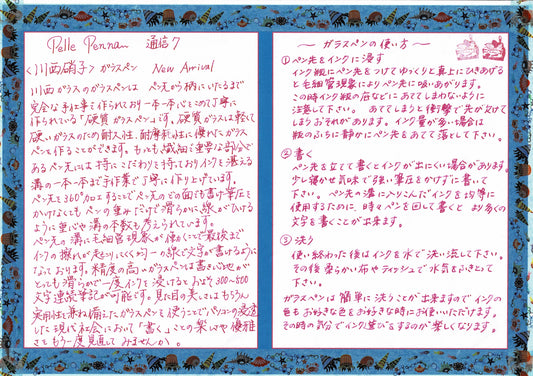 Pelle Pennan 通信7
〈川西硝子〉ガラスペン New Arrival
川西ガラスのガラスペンは ペン先から柄にいたるまで
完全な手仕事で作られており一本一本心をこめて丁寧に
作られている「硬質ガラスペン」です。硬質ガラスは軽くて
硬いガラスのため耐久性、耐摩耗性に優れたガラス
ペンを作ることができます。もっとも繊細で重要な部分で
あるペン先には特にこだわりを持っておりインクを湛える
溝の一本一本まで手作業で丁寧に作り上げています。
ペン先を360°加工することでペン先のどの面でも書け筆圧を
かけなくともペンの重みだけで滑らかに線がひける
ように重心や溝の本数も考えられています。
ペン先の溝に毛細管現象が働くことで最後まで
インクの擦れが起こりにくく均一な線で文字が書けるように
なっております。精度の高いガラスペンは書き心地が
とっても滑らかで一度インクを浸けるとおよそ300〜500
文字連続筆記が可能です。見た目の美しさはもちろん
実用性を兼ね備えたガラスペンを使うことでパソコンの浸透
した現代社会において「書く」ことの楽しさや優雅
さをもう一度見直してみませんか。
〜 ガラスペンの使い方 〜
①ペン先をインクに浸す
インク瓶にペン先をつけてゆっくりと真上にひきあげる
と毛細管現象によりペン先に吸いあがります。
この時インク瓶の底などにあててしまわないように
注意して下さい。 あててしまうと衝撃で先が欠けて
しまうおそれがあります。インク量が多い場合は
瓶のふちに静かにペン先をあてて落として下さい。
② 書く
ペン先を立てて書くとインクが出にくい場合があります。
少し寝かせ気味で弱い筆圧をかけずに書いて
下さい。ペン先の溝に入りこんだインクを均等に
使用するために、時々ペンを回して書くと より多くの
文字を書くことが出来ます。
③ 洗う
使い終わった後はインクを水で洗い流して下さい。
その後柔らかい布やティッシュで水気をふきとって
下さい。
ガラスペンは簡単に洗うことが出来ますのでインクの
色もお好きな色をお好きな時にお使いいただけます。
その時の気分でインク選びをするのが楽しくなります。